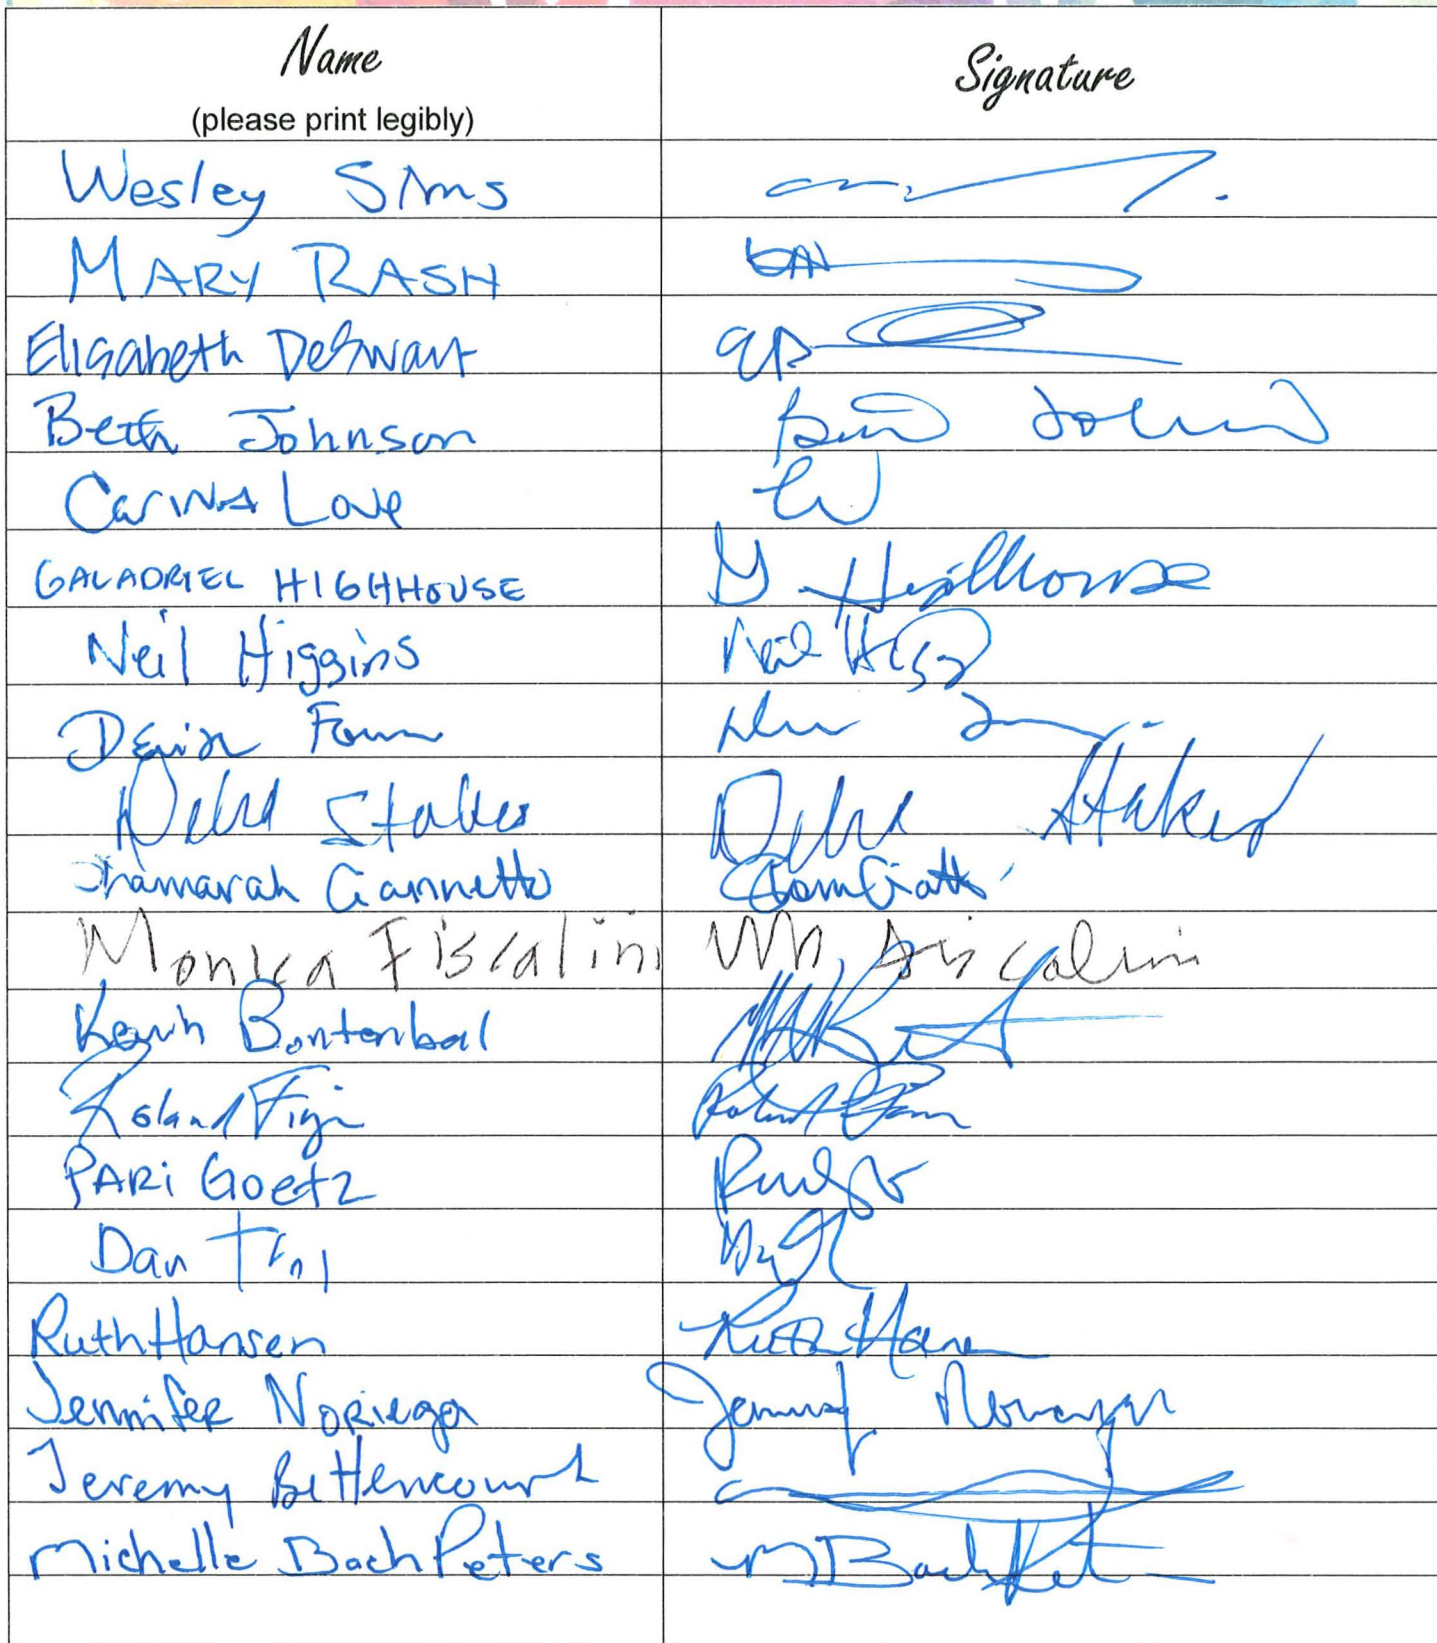 Name Signature
(please print legibly)
Wesley Sims
MARY RASH
Elisabeth DeSwart
Beth Johnson Johnson
Carina Love
GALADRIEL HIGHHOUSE G Highhouse
Neil Higgins Neil Higg
Devin
Debra Stakes Debra Stakes
Thamarah Giannetto
Monica Fiscalini M. Fiscalini
Kevin Bontenbal
Roland Finger Roland
PARi Goetz
Dan Troy
Ruth Hansen Ruth Hansen
Jennifer Noriega Jennifer Noriega
Jeremy Bettencourt
Michelle Bach Peters M Bach Peters